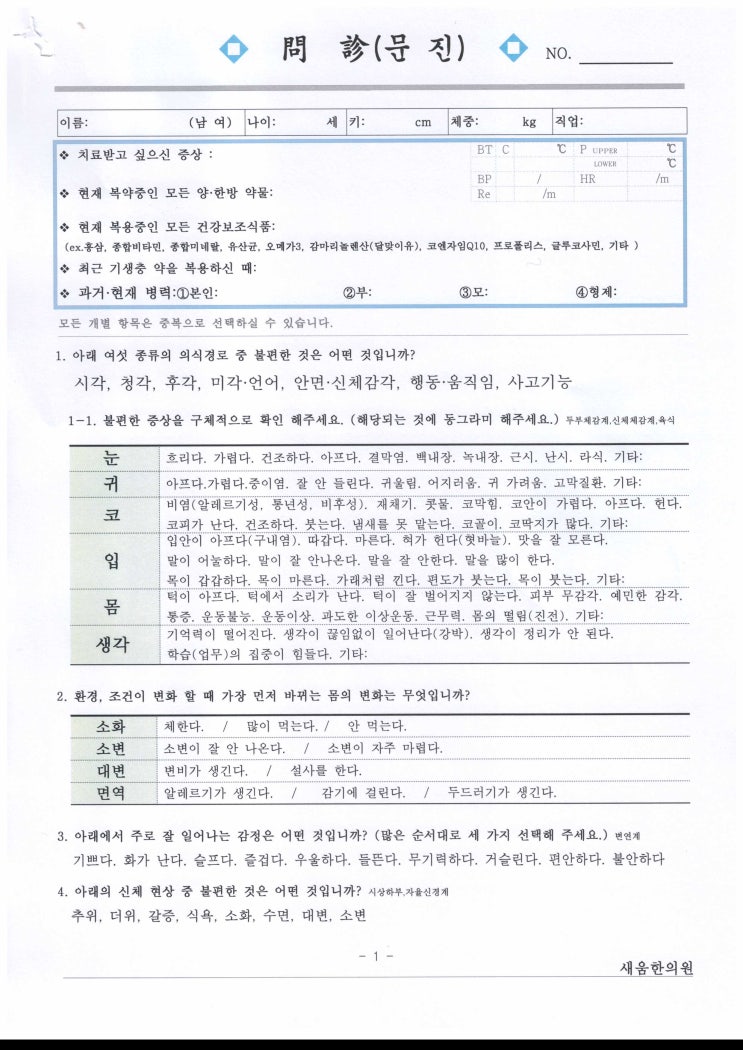 問 診(문 진) NO.
이름: (남 여) 나이: 세 키: cm 체중: kg 직업:
❖ 치료받고 싶으신 증상 :
BT C ℃ P UPPER ℃
LOWER ℃
❖ 현재 복약중인 모든 양·한방 약물:
BP / HR /m
Re /m
❖ 현재 복용중인 모든 건강보조식품:
(ex.홍삼, 종합비타민, 종합미네랄, 유산균, 오메가3, 감마리놀렌산(달맞이유), 코엔자임Q10, 프로폴리스, 글루코사민, 기타 )
❖ 최근 기생충 약을 복용하신 때:
❖ 과거·현재 병력:①본인: ②부: ③모: ④형제:
모든 개별 항목은 중복으로 선택하실 수 있습니다.
1. 아래 여섯 종류의 의식경로 중 불편한 것은 어떤 것입니까?
시각, 청각, 후각, 미각·언어, 안면·신체감각, 행동·움직임, 사고기능
1-1. 불편한 증상을 구체적으로 확인 해주세요. (해당되는 것에 동그라미 해주세요.) 두부체감계,신체체감계,육식
눈 흐리다. 가렵다. 건조하다. 아프다. 결막염. 백내장. 녹내장. 근시. 난시. 라식. 기타:
귀 아프다.가렵다.중이염. 잘 안 들린다. 귀울림. 어지러움. 귀 가려움. 고막질환. 기타:
코 비염(알레르기성, 통년성, 비후성). 재채기. 콧물. 코막힘. 코안이 가렵다. 아프다. 헌다.
코피가 난다. 건조하다. 붓는다. 냄새를 못 맡는다. 코골이. 코딱지가 많다. 기타:
입 입안이 아프다(구내염). 따갑다. 마른다. 혀가 헌다(혓바늘). 맛을 잘 모른다.
말이 어눌하다. 말이 잘 안나온다. 말을 잘 안한다. 말을 많이 한다.
목이 감감하다. 목이 마른다. 가래처럼 낀다. 편도가 붓는다. 목이 붓는다. 기타:
몸 턱이 아프다. 턱에서 소리가 난다. 턱이 잘 벌어지지 않는다. 피부 무감각. 예민한 감각.
통증. 운동불능. 운동이상. 과도한 이상운동. 근무력. 몸의 떨림(진전). 기타:
생각 기억력이 떨어진다. 생각이 끊임없이 일어난다(강박). 생각이 정리가 안 된다.
학습(업무)의 집중이 힘들다. 기타:
2. 환경, 조건이 변화 할 때 가장 먼저 바뀌는 몸의 변화는 무엇입니까?
소화 체한다. / 많이 먹는다. / 안 먹는다.
소변 소변이 잘 안 나온다. / 소변이 자주 마렵다.
대변 변비가 생긴다. / 설사를 한다.
면역 알레르기가 생긴다. / 감기에 걸린다. / 두드러기가 생긴다.
3. 아래에서 주로 잘 일어나는 감정은 어떤 것입니까? (많은 순서대로 세 가지 선택해 주세요.) 변연계
기쁘다. 화가 난다. 슬프다. 즐겁다. 우울하다. 들뜬다. 무기력하다. 거슬린다. 편안하다. 불안하다
4. 아래의 신체 현상 중 불편한 것은 어떤 것입니까? 시상하부,자율신경계
추위, 더위, 갈증, 식욕, 소화, 수면, 대변, 소변
- 1 -
새움한의원